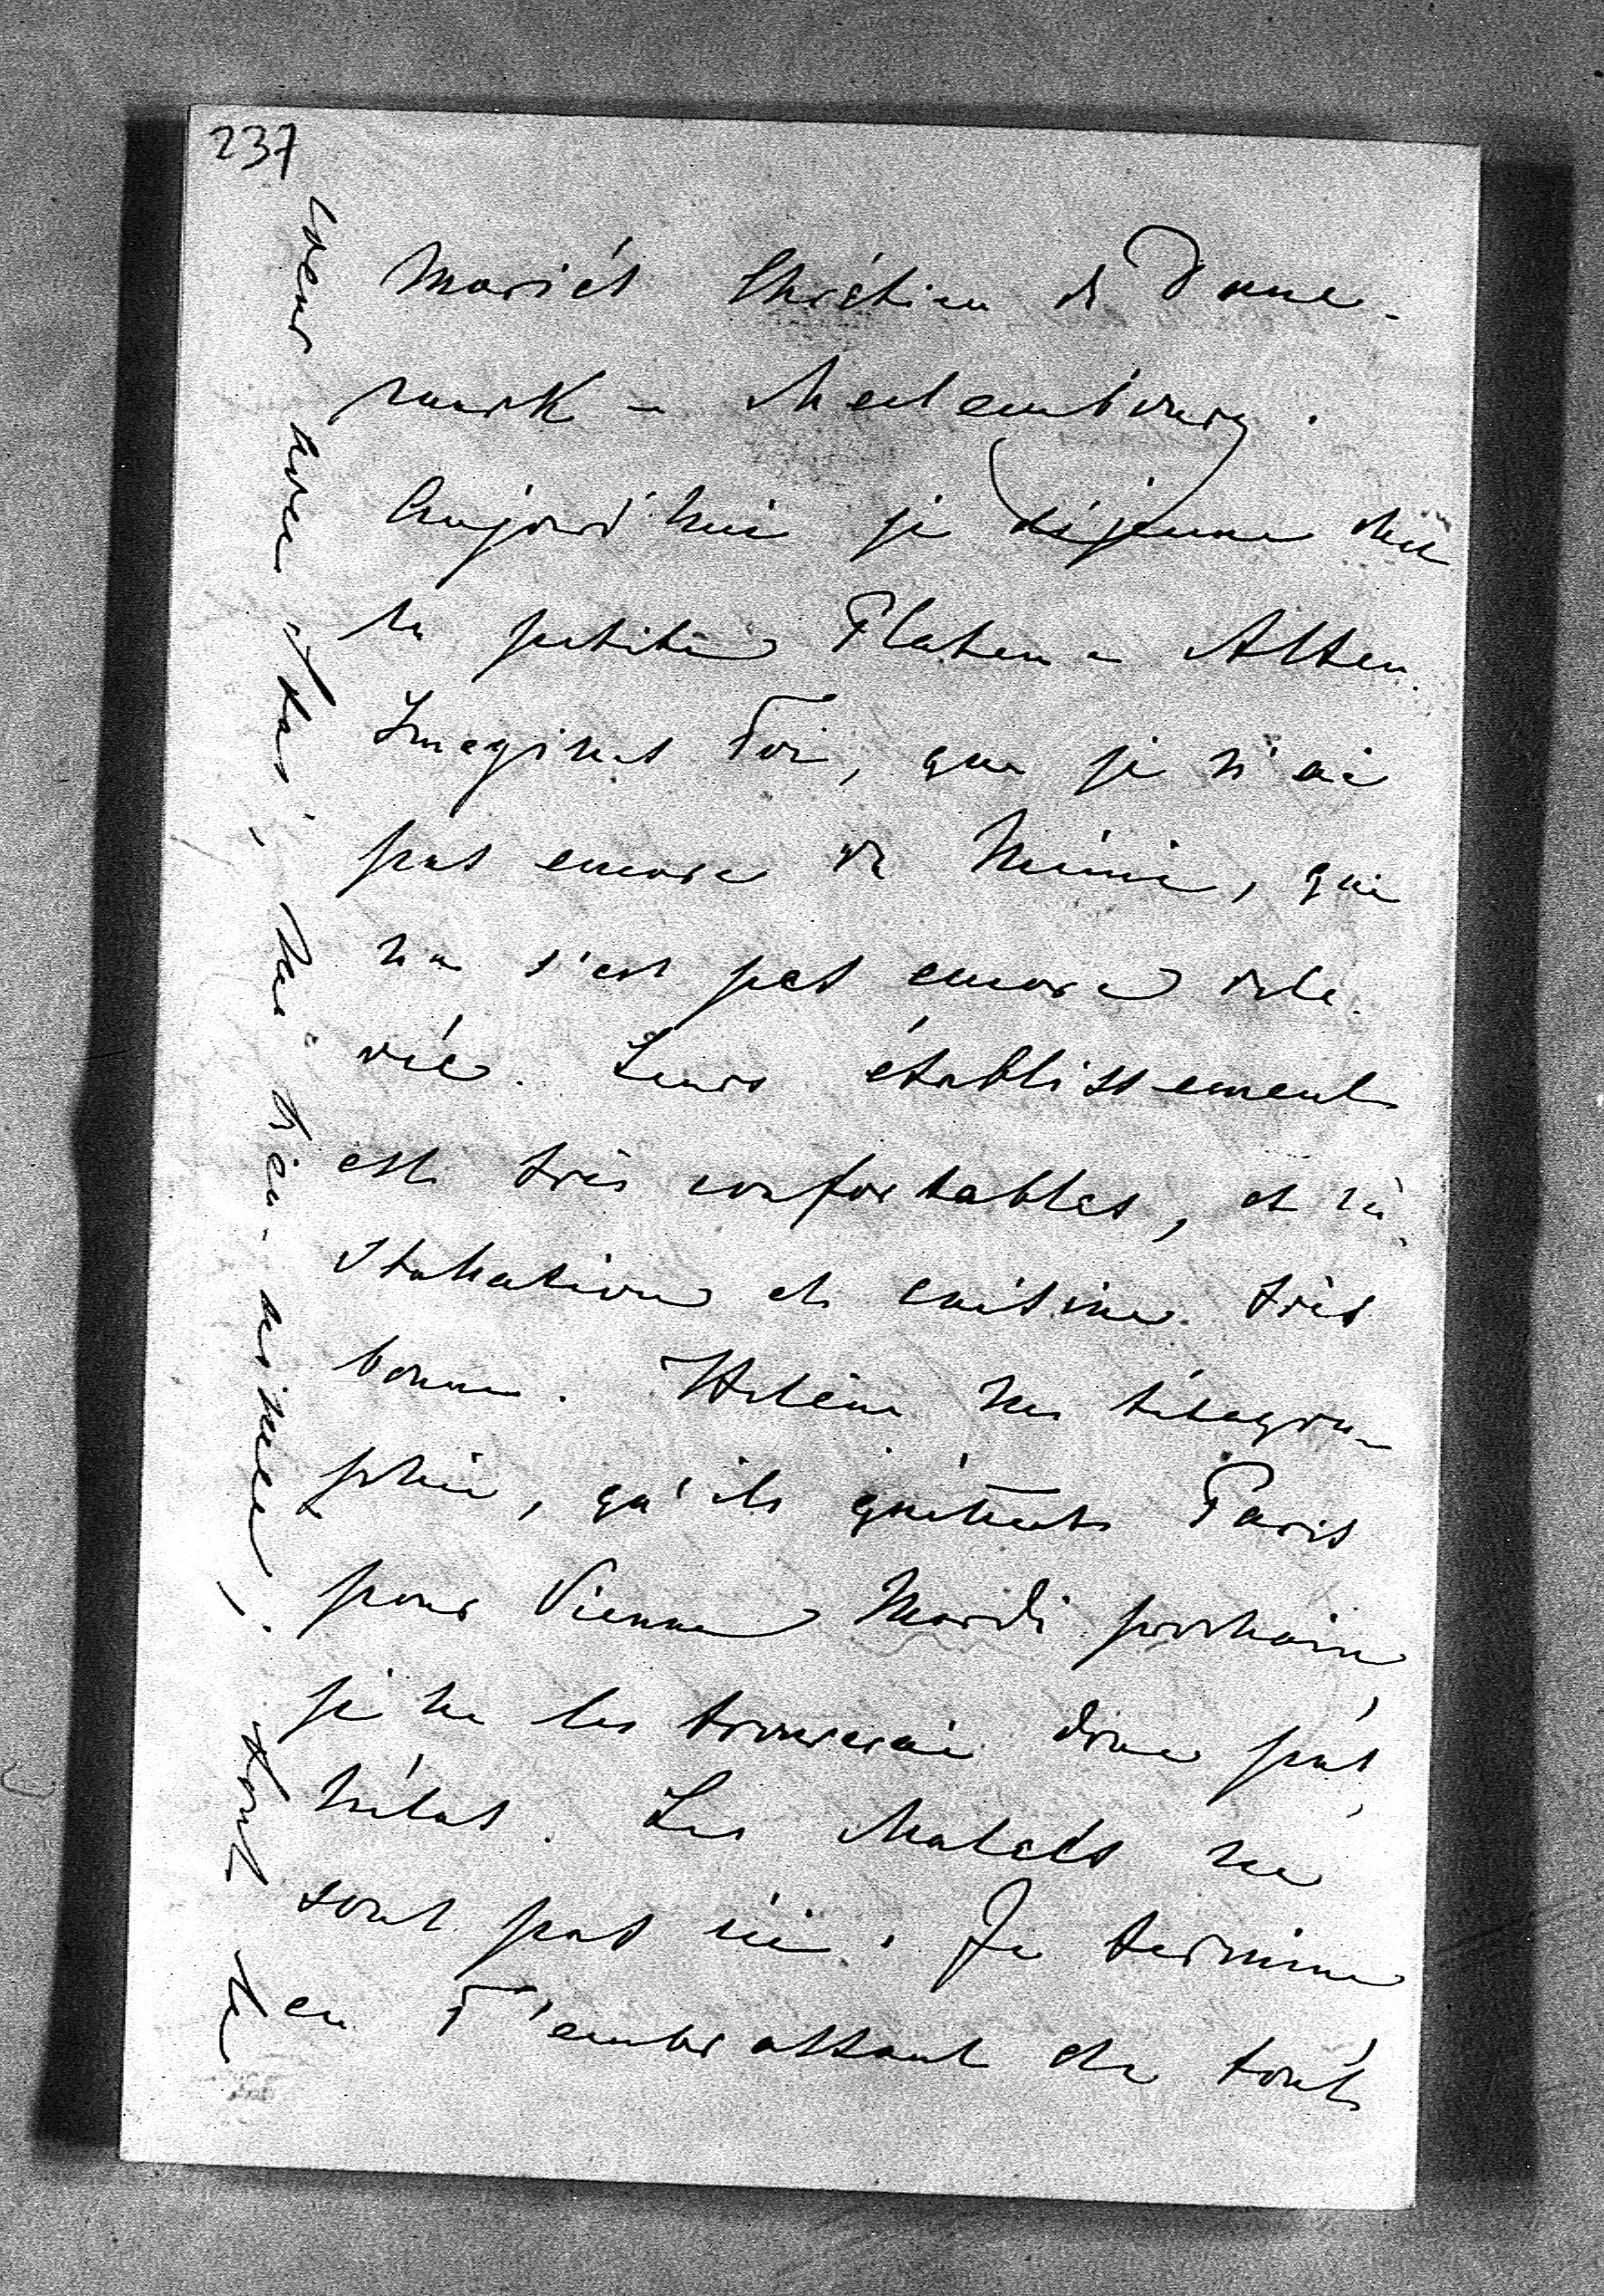 237
Mariés Chrétien de Dane-
mark - Meclembourg.
Aujourd'hui je déjeune chez
la petite Platen - Alten.
Imagines Toi, que je n'ai
pas encore vu Mimi, qui
ne s'est pas encore rele-
vée. Leurs établissement
est très confortables, et in-
stallation et cuisine très
bonne. Hélène me télégra-
phie, qu'ils quittent Paris
pour Vienne Mardi prochain,
je ne les trouverai donc pas,
hélas. Les Malets ne
sont pas ici. Je termine
en T'embrassant de tout
coeur ma bien-aimée,. tout